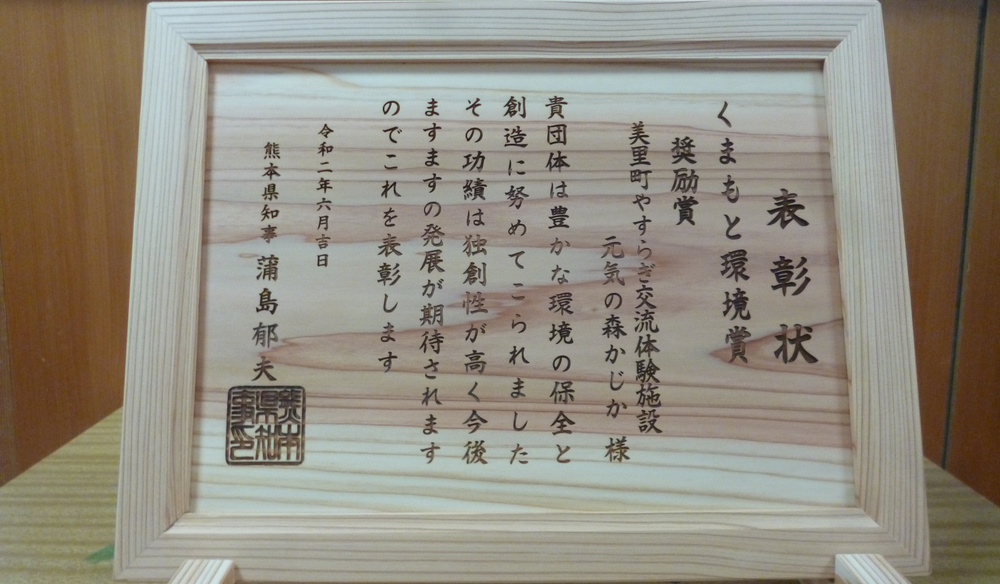 表彰状
くまもと環境賞
奨励賞
美里町やすらぎ交流体験施設
元気の森かじか 様
貴団体は豊かな環境の保全と
創造に努めてこられました
その功績は独創性が高く今後
ますますの発展が期待されます
のでこれを表彰します
令和二年六月吉日
熊本県知事 蒲島郁夫
熊本県知事印